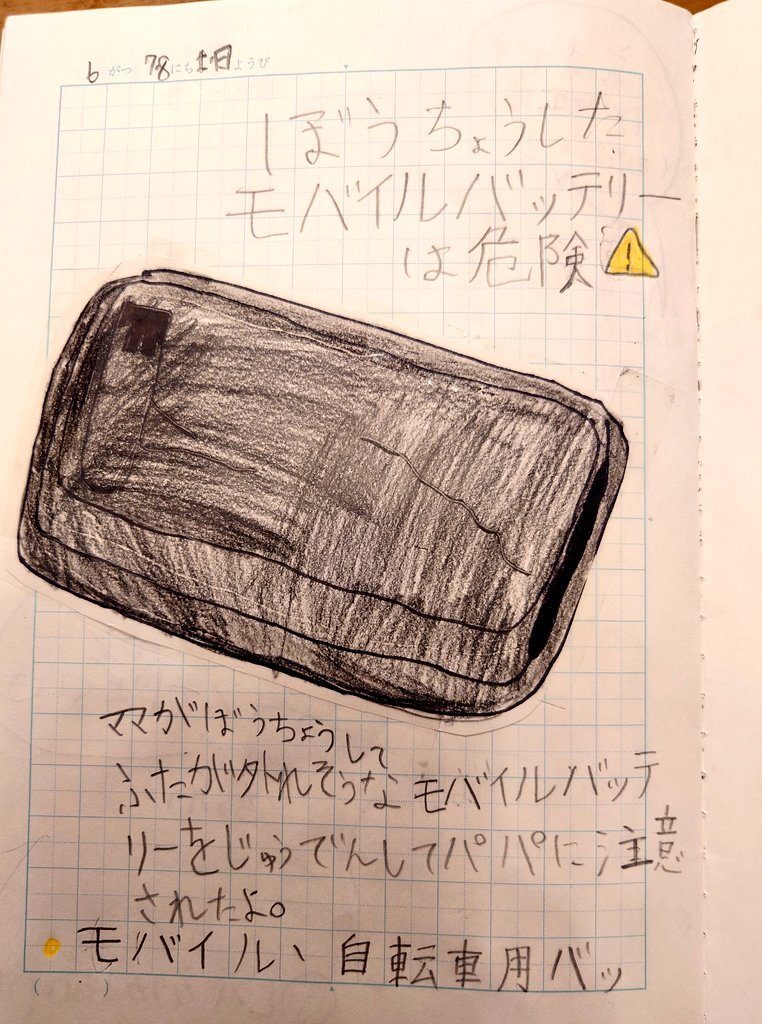 6がつ78にち土日ようび
ぼうちょうした
モバイルバッテリー
は危険⚠
ママがぼうちょうして
ふたが外れそうなモバイルバッテ
リーをじゅうでんしてパパに注意
されたよ。
モバイル、自転車用バッ
( )